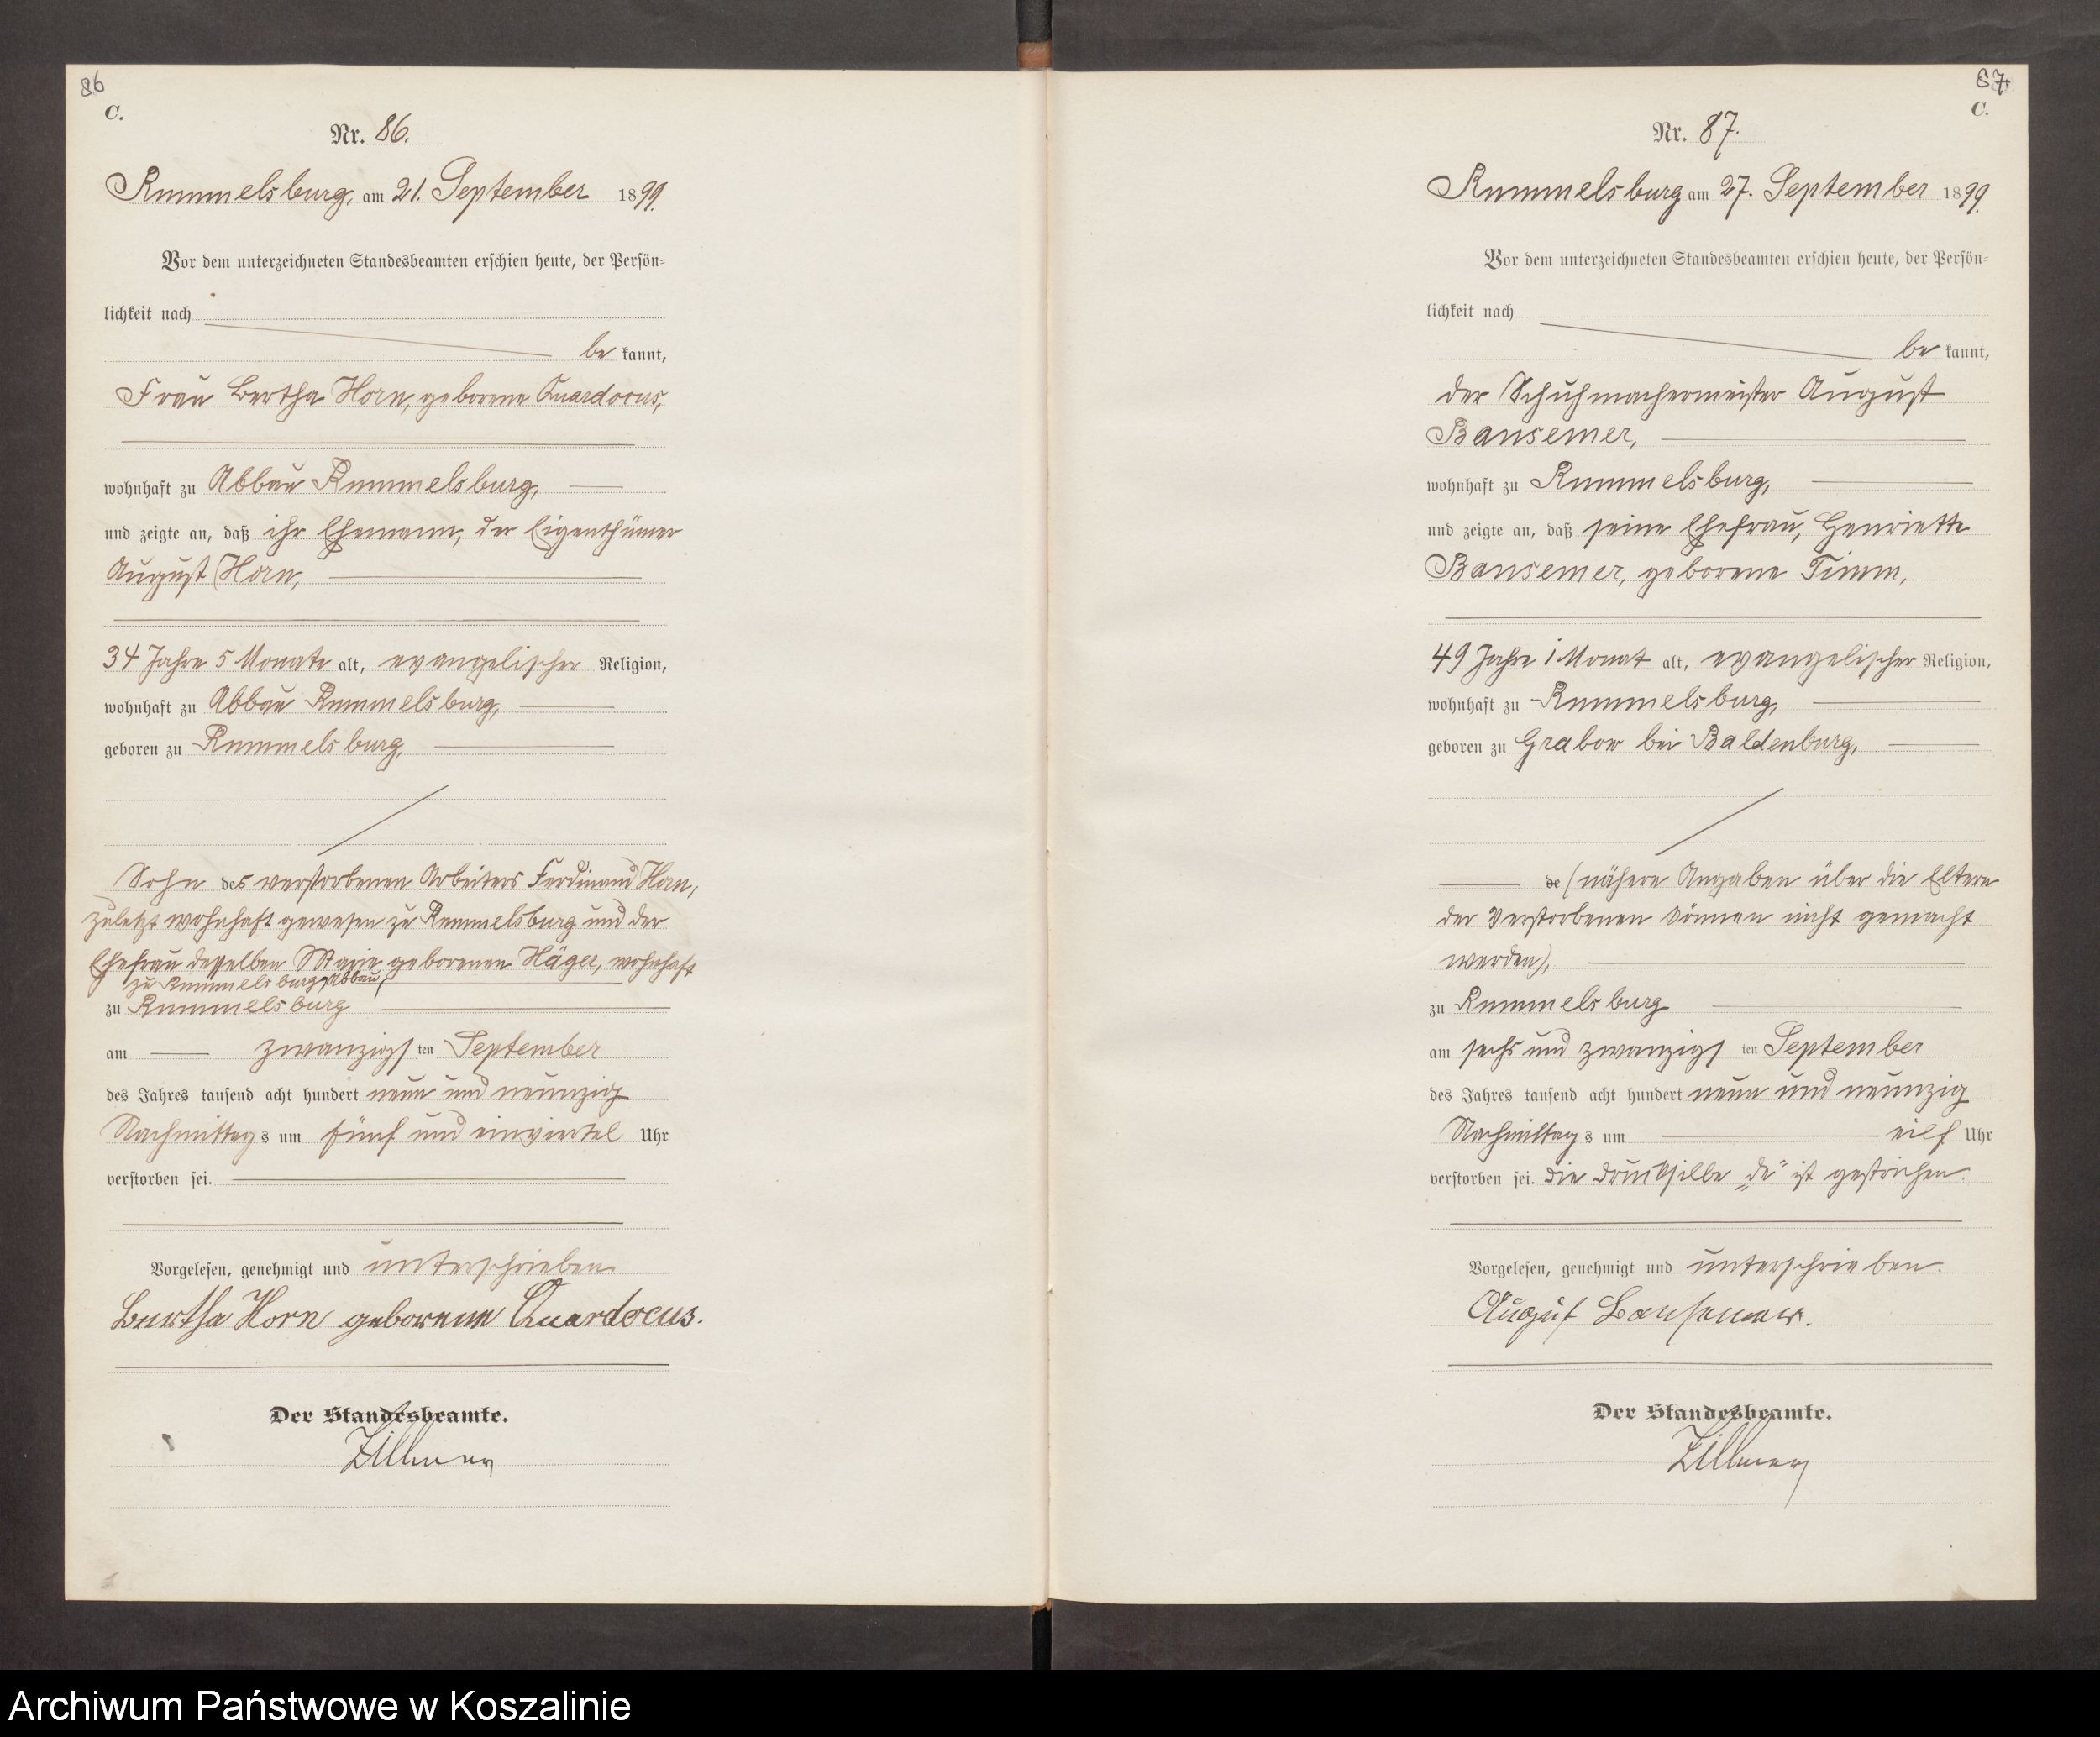 86
C.
Nr. 86.
Rummelsburg, am 21. September 1899.
Vor dem unterzeichneten Standesbeamten erschien heute, der Persön-
lichkeit nach
be kannt,
Frau Bertha Horn, geborene Quardocus,
wohnhaft zu Abbau Rummelsburg,
und zeigte an, daß ihr Ehemann, der Eigenthümer
August Horn,
34 Jahre 5 Monate alt, evangelischer Religion,
wohnhaft zu Abbau Rummelsburg,
geboren zu Rummelsburg,
Sohn des verstorbenen Arbeiters Ferdinand Horn,
zuletzt wohnhaft gewesen zu Rummelsburg und der
Ehefrau desselben Marie geborenen Häger, wohnhaft
zu Rummelsburg Abbau,
zu Rummelsburg
am zwanzigs ten September
des Jahres tausend acht hundert neun und neunzig
Nachmittag s um fünf und einviertel Uhr
verstorben sei.
Vorgelesen, genehmigt und unterschrieben
Bertha Horn geborene Quardocus.
Der Standesbeamte.
Zillmer
87.
C.
Nr. 87.
Rummelsburg am 27. September 1899.
Vor dem unterzeichneten Standesbeamten erschien heute, der Persön-
lichkeit nach
be kannt,
der Schuhmachermeister August
Bansemer,
wohnhaft zu Rummelsburg,
und zeigte an, daß seine Ehefrau, Henriette
Bansemer, geborene Timm,
49 Jahre 1 Monat alt, evangelischer Religion,
wohnhaft zu Rummelsburg,
geboren zu Grabow bei Baldenburg,
de (nähere Angaben über die Eltern
der Verstorbenen können nicht gemacht
werden),
zu Rummelsburg
am sechs und zwanzigs ten September
des Jahres tausend acht hundert neun und neunzig
Nachmittag s um eilf Uhr
verstorben sei. Die Drucksilbe „de“ ist gestrichen.
Vorgelesen, genehmigt und unterschrieben.
August Bansemer.
Der Standesbeamte.
Zillmer
Archiwum Państwowe w Koszalinie